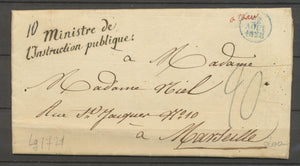 10 Ministre de
l'Instruction publique:
à Madame
Madame Niel
Rue St Jacques N° 10
à Marseille